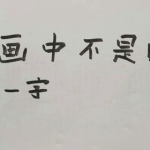 画中不是
一字